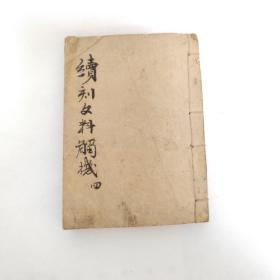 續刻文料觸機
四